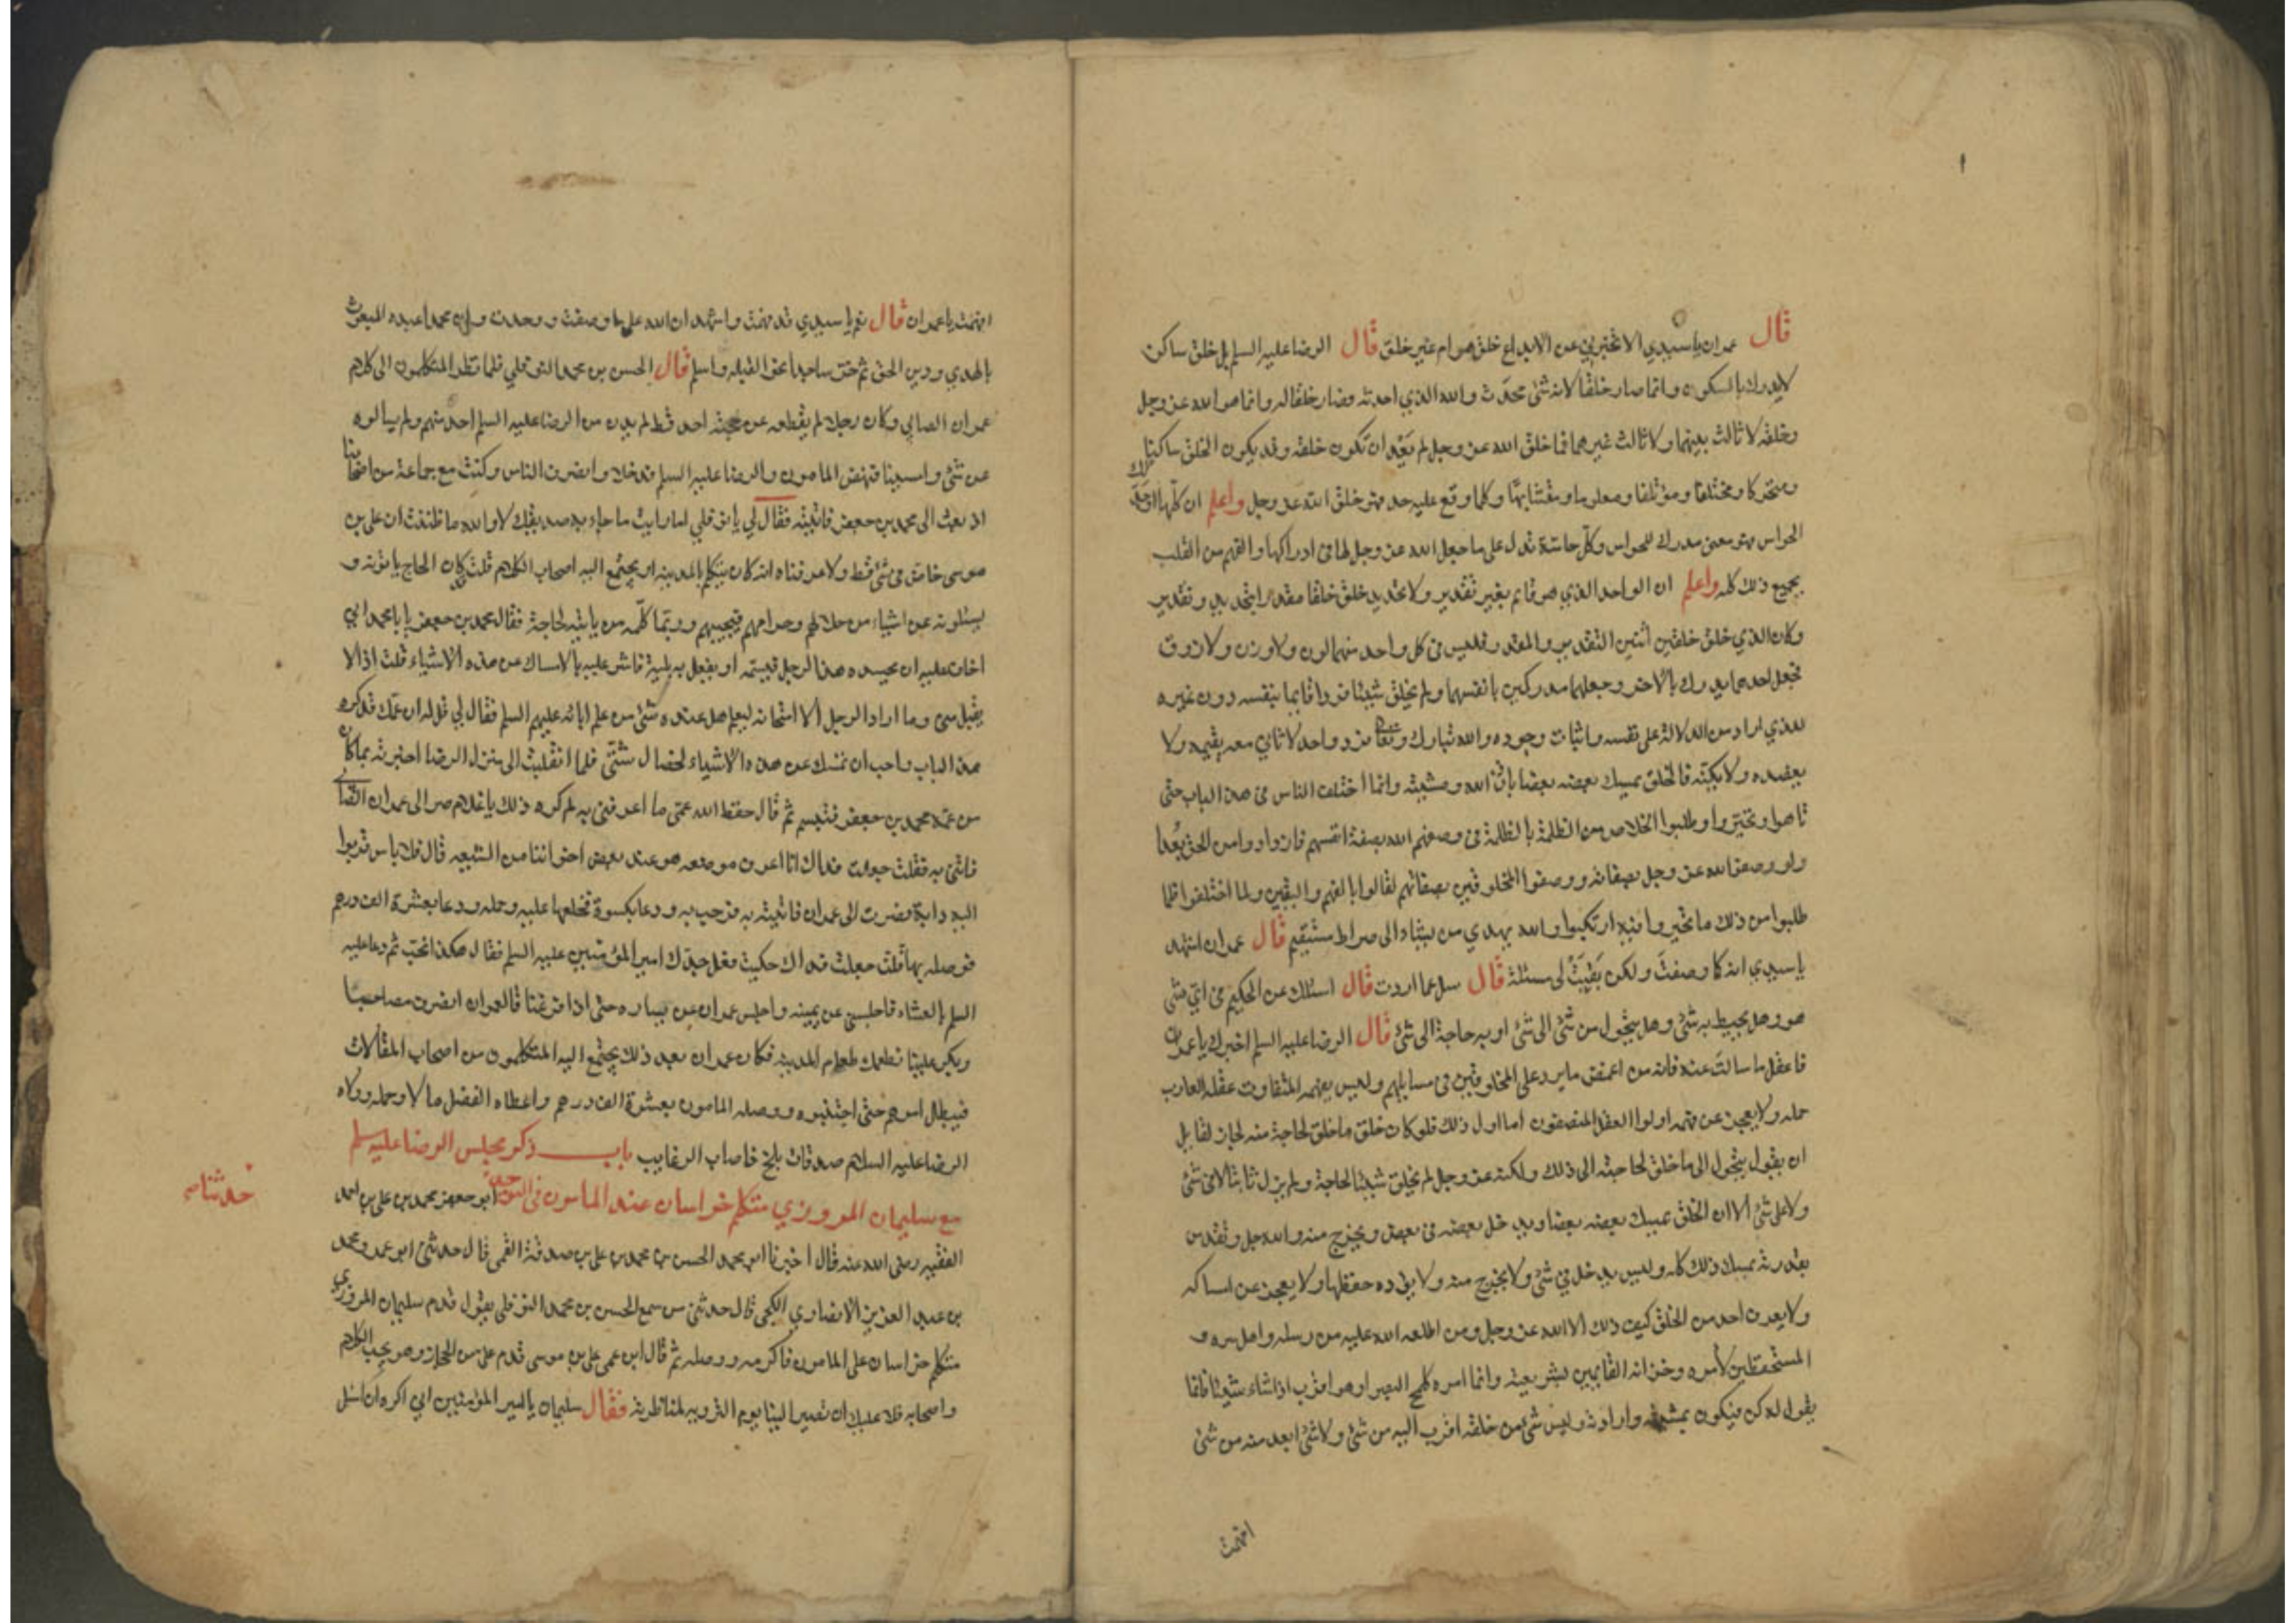 قال عمران يا سيدي الا تخبرني عن الابداع خلق هو ام غير خلق قال الرضا عليه السلم بل خلق ساكن
لا يدرك بالسكون وانما صار خلقا لانه شئ محدث والله الذي احدثه فصار خلقا له وانما هو الله عز وجل
وخلقه لا ثالث بينهما ولا ثالث غيرهما فما خلق الله عز وجل لم يعد ان تكون خلقه وقد يكون الخلق ساكنا
ومتحركا ومختلفا ومؤتلفا ومعلوما ومتشابها وكلما وقع عليه حد فهو خلق الله عز وجل واعلم ان كلما اوجدتك
الحواس فهو معنى مدرك للحواس وكل حاسة تدل على ما جعل الله عز وجل لها في ادراكها والفهم من القلب
بجميع ذلك كله واعلم ان الواحد الذي هو قايم بغير تقدير ولا تحديد خلق خلقا مقدرا بتحديد وتقدير
وكان الذي خلق خلقين اثنين التقدير والمقدر فليس في كل واحد منهما لون ولا وزن ولا ذوق
فجعل احدهما يدرك بالاخر وجعلهما مدركين بانفسهما ولم يخلق شيئا فردا قايما بنفسه دون غيره
للذي اراد من الدلالة على نفسه واثبات وجوده والله تبارك وتعالى فرد واحد لا ثاني معه يقيمه ولا
يعضده ولا يكنه فالخلق يمسك بعضه بعضا باذن الله ومشيته وانما اختلف الناس في هذا الباب حتى
تاهوا وتحيروا وطلبوا الخلاص من الظلمة بالظلمة في وصفهم الله بصفة انفسهم فازدادوا من الحق بعدا
ولو وصفوا الله عز وجل بصفاته ووصفوا المخلوقين بصفاتهم لقالوا بالفهم واليقين ولما اختلفوا فلما
طلبوا من ذلك ما تحيروا فيه ارتكبوا والله يهدي من يشاء الى صراط مستقيم قال عمران اشهد
يا سيدي انه كما وصفت ولكن بقيت لى مسئلة قال سل عما اردت قال اسئلك عن الحكيم في اي شئ
هو وهل يحيط به شئ وهل يتحول من شئ الى شئ او به حاجة الى شئ قال الرضا عليه السلم اخبرك يا عمران
فاعقل ما سالت عنه فانه من اغمض ما يرد على المخلوقين في مسايلهم وليس يفهمه المتفاوت عقله العازب
حمله ولا يعجز عن فهمه اولوا العقل المنصفون اما اول ذلك فلو كان خلق ما خلق لحاجة منه لجاز لقايل
ان يقول يتحول الى ما خلق لحاجته الى ذلك ولكنه عز وجل لم يخلق شيئا لحاجة ولم يزل ثابتا لا في شئ
ولا على شئ الا ان الخلق يمسك بعضه بعضا ويدخل بعضه في بعض ويخرج منه والله جل وتقدس
بقدرته يمسك ذلك كله وليس يدخل في شئ ولا يخرج منه ولا يؤده حفظها ولا يعجز عن امساكه
ولا يعرف احد من الخلق كيف ذلك الا الله عز وجل ومن اطلعه الله عليه من رسله واهل سره و
المستحفظين لأمره وخزانه القايمين بشريعته وانما امره كلمح البصر او هو اقرب اذا شاء شيئا فانما
يقول له كن فيكون بمشيته وارادته وليس شئ من خلقه اقرب اليه من شئ ولا شئ ابعد منه من شئ
افهمت
افهمت يا عمران قال نعم يا سيدي قد فهمت واشهد ان الله على ما وصفت ووحدت وان محمدا عبده المبعوث
بالهدي ودين الحق ثم خر ساجدا نحو القبله واسلم قال الحسن بن محمد النوفلي فلما نظر المتكلمون الى كلام
عمران الصابي وكان رجلا لم يقطعه عن حجته احد قط لم يدن من الرضا عليه السلم احد منهم ولم يسالوه
عن شئ وامسينا فنهض المامون والرضا عليه السلم فدخلا وانصرف الناس وكنت مع جماعة من اصحابنا
اذ بعث الى محمد بن جعفر فاتيته فقال لي يا نوفلي اما رايت ما جاء به صديقك لا والله ما ظننت ان علي بن
موسى خاض في شئ قط ولا عرفناه انه كان يتكلم بالمدينة او يجتمع اليه اصحاب الكلام قلت كان الحاج ياتونه و
يسئلونه عن اشياء من حلالهم وحرامهم فيجيبهم وربما كلمه من ياتيه لحاجة فقال محمد بن جعفر يا با محمد اني
اخاف عليه ان يحسده هذا الرجل فيسمه او يفعل به بلية فاشر عليه بالامساك عن هذه الاشياء قلت اذا لا
يقبل مني وما اراد الرجل الا امتحانه ليعلم هل عنده شئ من علم ابائه عليهم السلم فقال لي قل له ان عمك قد كره
هذا الباب واحب ان تمسك عن هذه الاشياء لخصال شتى فلما انقلبت الى منزل الرضا اخبرته بما كان
من عمه محمد بن جعفر فتبسم ثم قال حفظ الله عمي ما اعرفني به لم كره ذلك يا غلام صر الى عمران الصابي
فاتني به فقلت جعلت فداك انا اعرف موضعه هو عند بعض اخواننا من الشيعه قال فلا باس قربوا
اليه دابة فصرت الى عمران فاتيته به فرحب به ودعا بكسوة فخلعها عليه وحمله ودعا بعشرة الف درهم
فوصله بها قلت جعلت فداك حكيت فعل جدك امير المؤمنين عليه السلم فقال هكذا نحب ثم دعا عليه
السلم بالعشاء فاجلسني عن يمينه واجلس عمران عن يساره حتى اذا فرغنا قال لعمران انصرف مصاحبا
وبكر علينا نطعمك طعام المدينة فكان عمران بعد ذلك يجتمع اليه المتكلمون من اصحاب المقالات
فيبطل امرهم حتى اجتنبوه ووصله المامون بعشرة الف درهم واعطاه الفضل مالا وحمله وولاه
الرضا عليه السلام صدقات بلخ فاصاب الرغايب باب ذكر مجلس الرضا عليه السلم
مع سليمان المروزي متكلم خراسان عند المامون في التوحيد ابو جعفر محمد بن علي بن احمد
حدثنا
الفقيه رضى الله عنه قال اخبرنا ابو محمد الحسن بن محمد بن علي بن صدقة القمي قال حدثني ابو عمرو محمد
بن عبد العزيز الانصاري الكجي قال حدثني من سمع الحسن بن محمد النوفلي يقول قدم سليمان المروزي
متكلم خراسان على المامون فاكرمه ووصله ثم قال ابن عمي علي بن موسى قدم علي من الحجاز وهو يحب الكلام
واصحابه فلا عليك ان تصير الينا يوم التروية لمناظرته فقال سليمان يا امير المؤمنين اني اكره ان اسئل